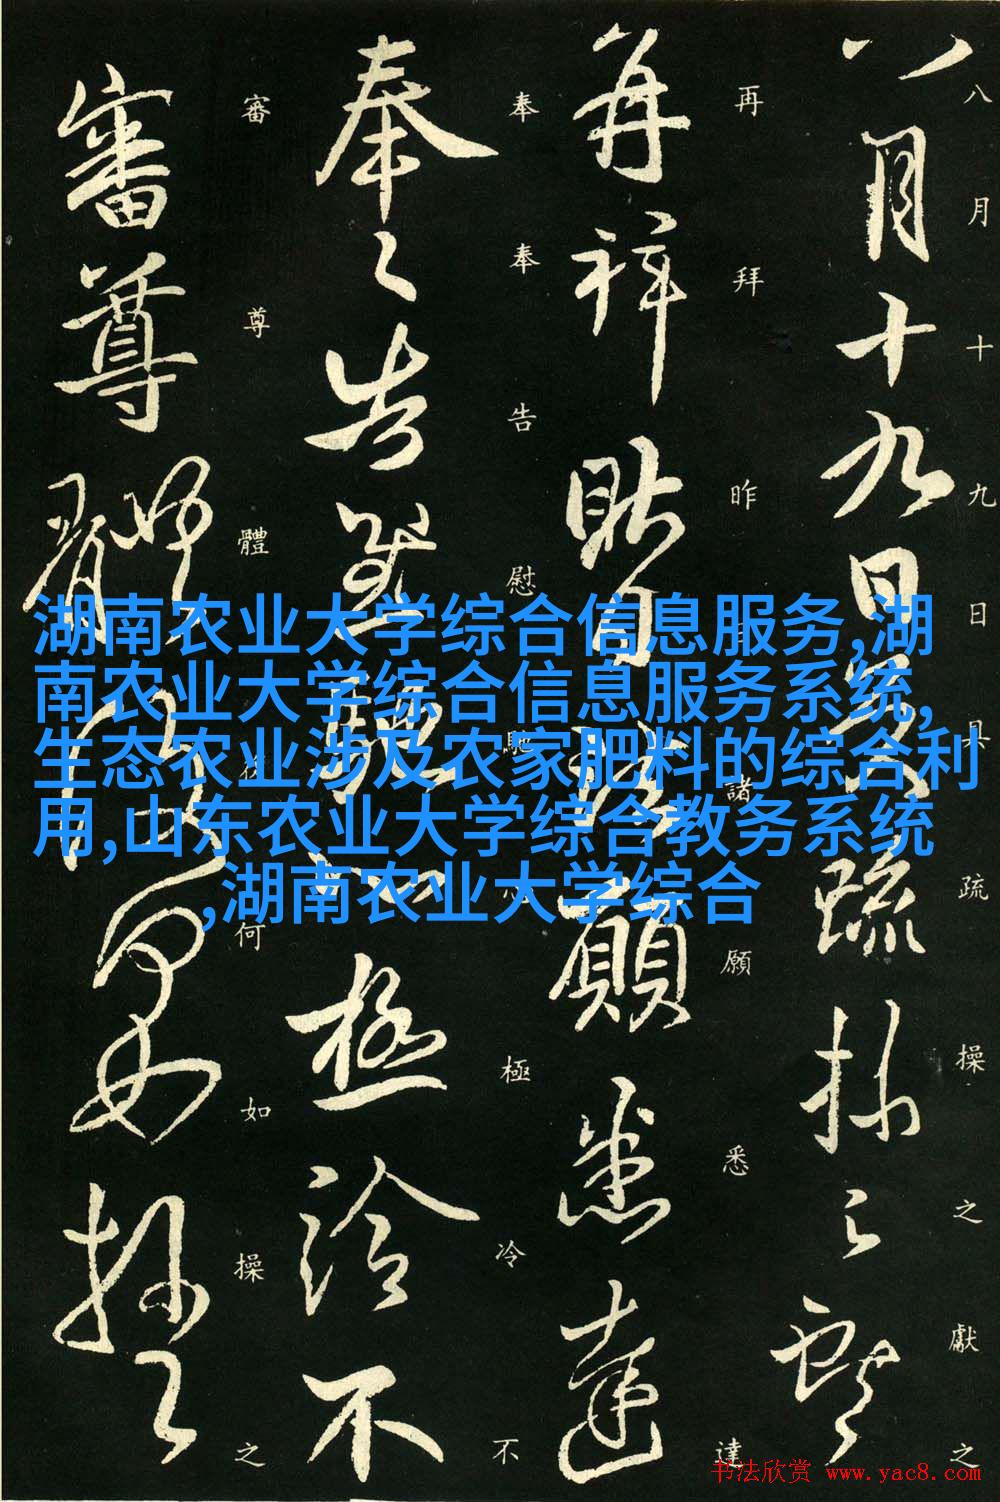 八月十九日具疏操之獻之
八月十九日具疏操之獻之
再拜昨日諸願悉達
再拜昨日諸願悉達
奉〻告慰馳心極冷不
奉奉告慰馳心極冷不
審尊體復何如操之
審尊體復何如操之
湖南农业大学综合信息服务,湖
南农业大学综合信息服务系统,
生态农业涉及农家肥料的综合利
用,山东农业大学综合教务系统
,湖南农业大学综合
书法欣赏 www.yac8.com